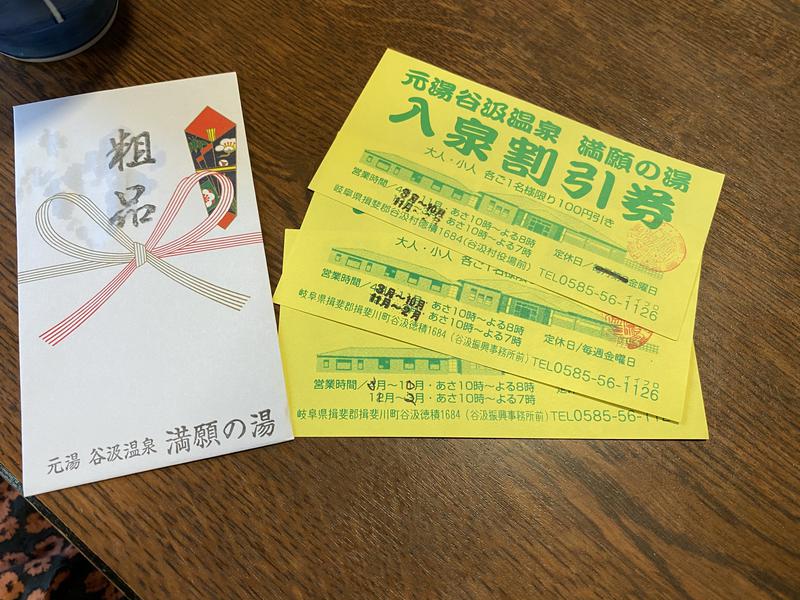 粗品
元湯 谷汲温泉 満願の湯
元湯谷汲温泉 満願の湯
入泉割引券
大人・小人 各ご1名様限り100円引き
営業時間/ 3月~10月・あさ10時~よる8時
11月~ あさ10時~よる7時
定休日/ 金曜日
岐阜県揖斐郡谷汲村徳積1684(谷汲村役場前) TEL0585-56-1126
イイフロ
大人・小人 各ご1名様
営業時間/ 3月~10月・あさ10時~よる8時
11月~2月・あさ10時~よる7時
定休日/毎週金曜日
岐阜県揖斐郡揖斐川町谷汲徳積1684(谷汲振興事務所前) TEL0585-56-1126
イイフロ
営業時間/ 月~10月・あさ10時~よる8時
12月~ 月・あさ10時~よる7時
岐阜県揖斐郡揖斐川町谷汲徳積1684(谷汲振興事務所前) TEL0585-56-1126